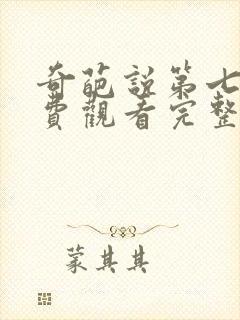 奇葩說第七
費觀看完整
蒙其其